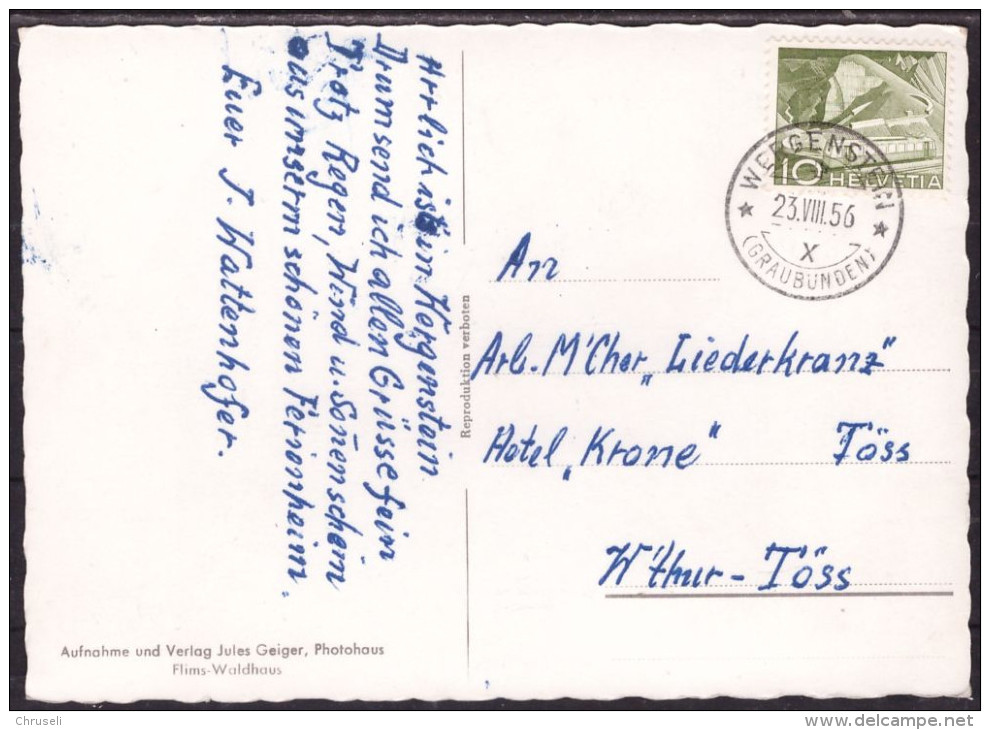 Arrlich ists in Wergenstein
Drum send ich allen Grüsse fein
Trotz Regen, Wind u. Sonenschein
aus unserm schönen Ferienheim.
Euer J. Wattenhofer.
Aufnahme und Verlag Jules Geiger, Photohaus
Flims-Waldhaus
Reproduktion verboten
10 HELVETIA
WERGENSTEIN
23.VIII.56
X
(GRAUBÜNDEN)
An
Arb. M'Chor „Liederkranz"
Hotel „Krone" Töss
W'thur-Töss
Chruseli
delcampe.net